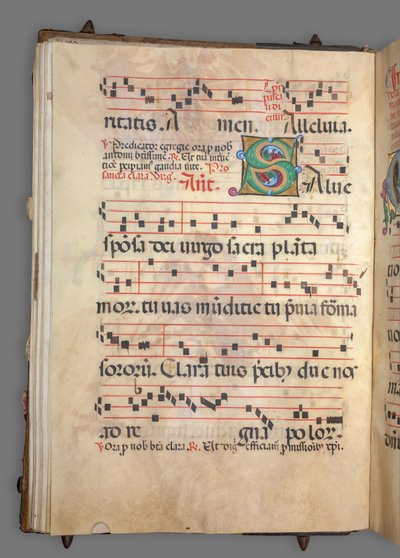 ritatis. A men. Alleluia.
℣ Predicator egregie ora p nob
antoni btissime ℟. Et tui
gaudia vite. Pro
sancta clara Ant. S Alve
sposa dei uirgo sacra plāta
mor. tu uas mūditie tu p̄uia fōma
sororū. Clara tuis p̄cib9 duc nos
ad re gna polor.
℣ Ora p nob bta clara ℟. Et dig efficiam p̄missioib9 xp̄i.